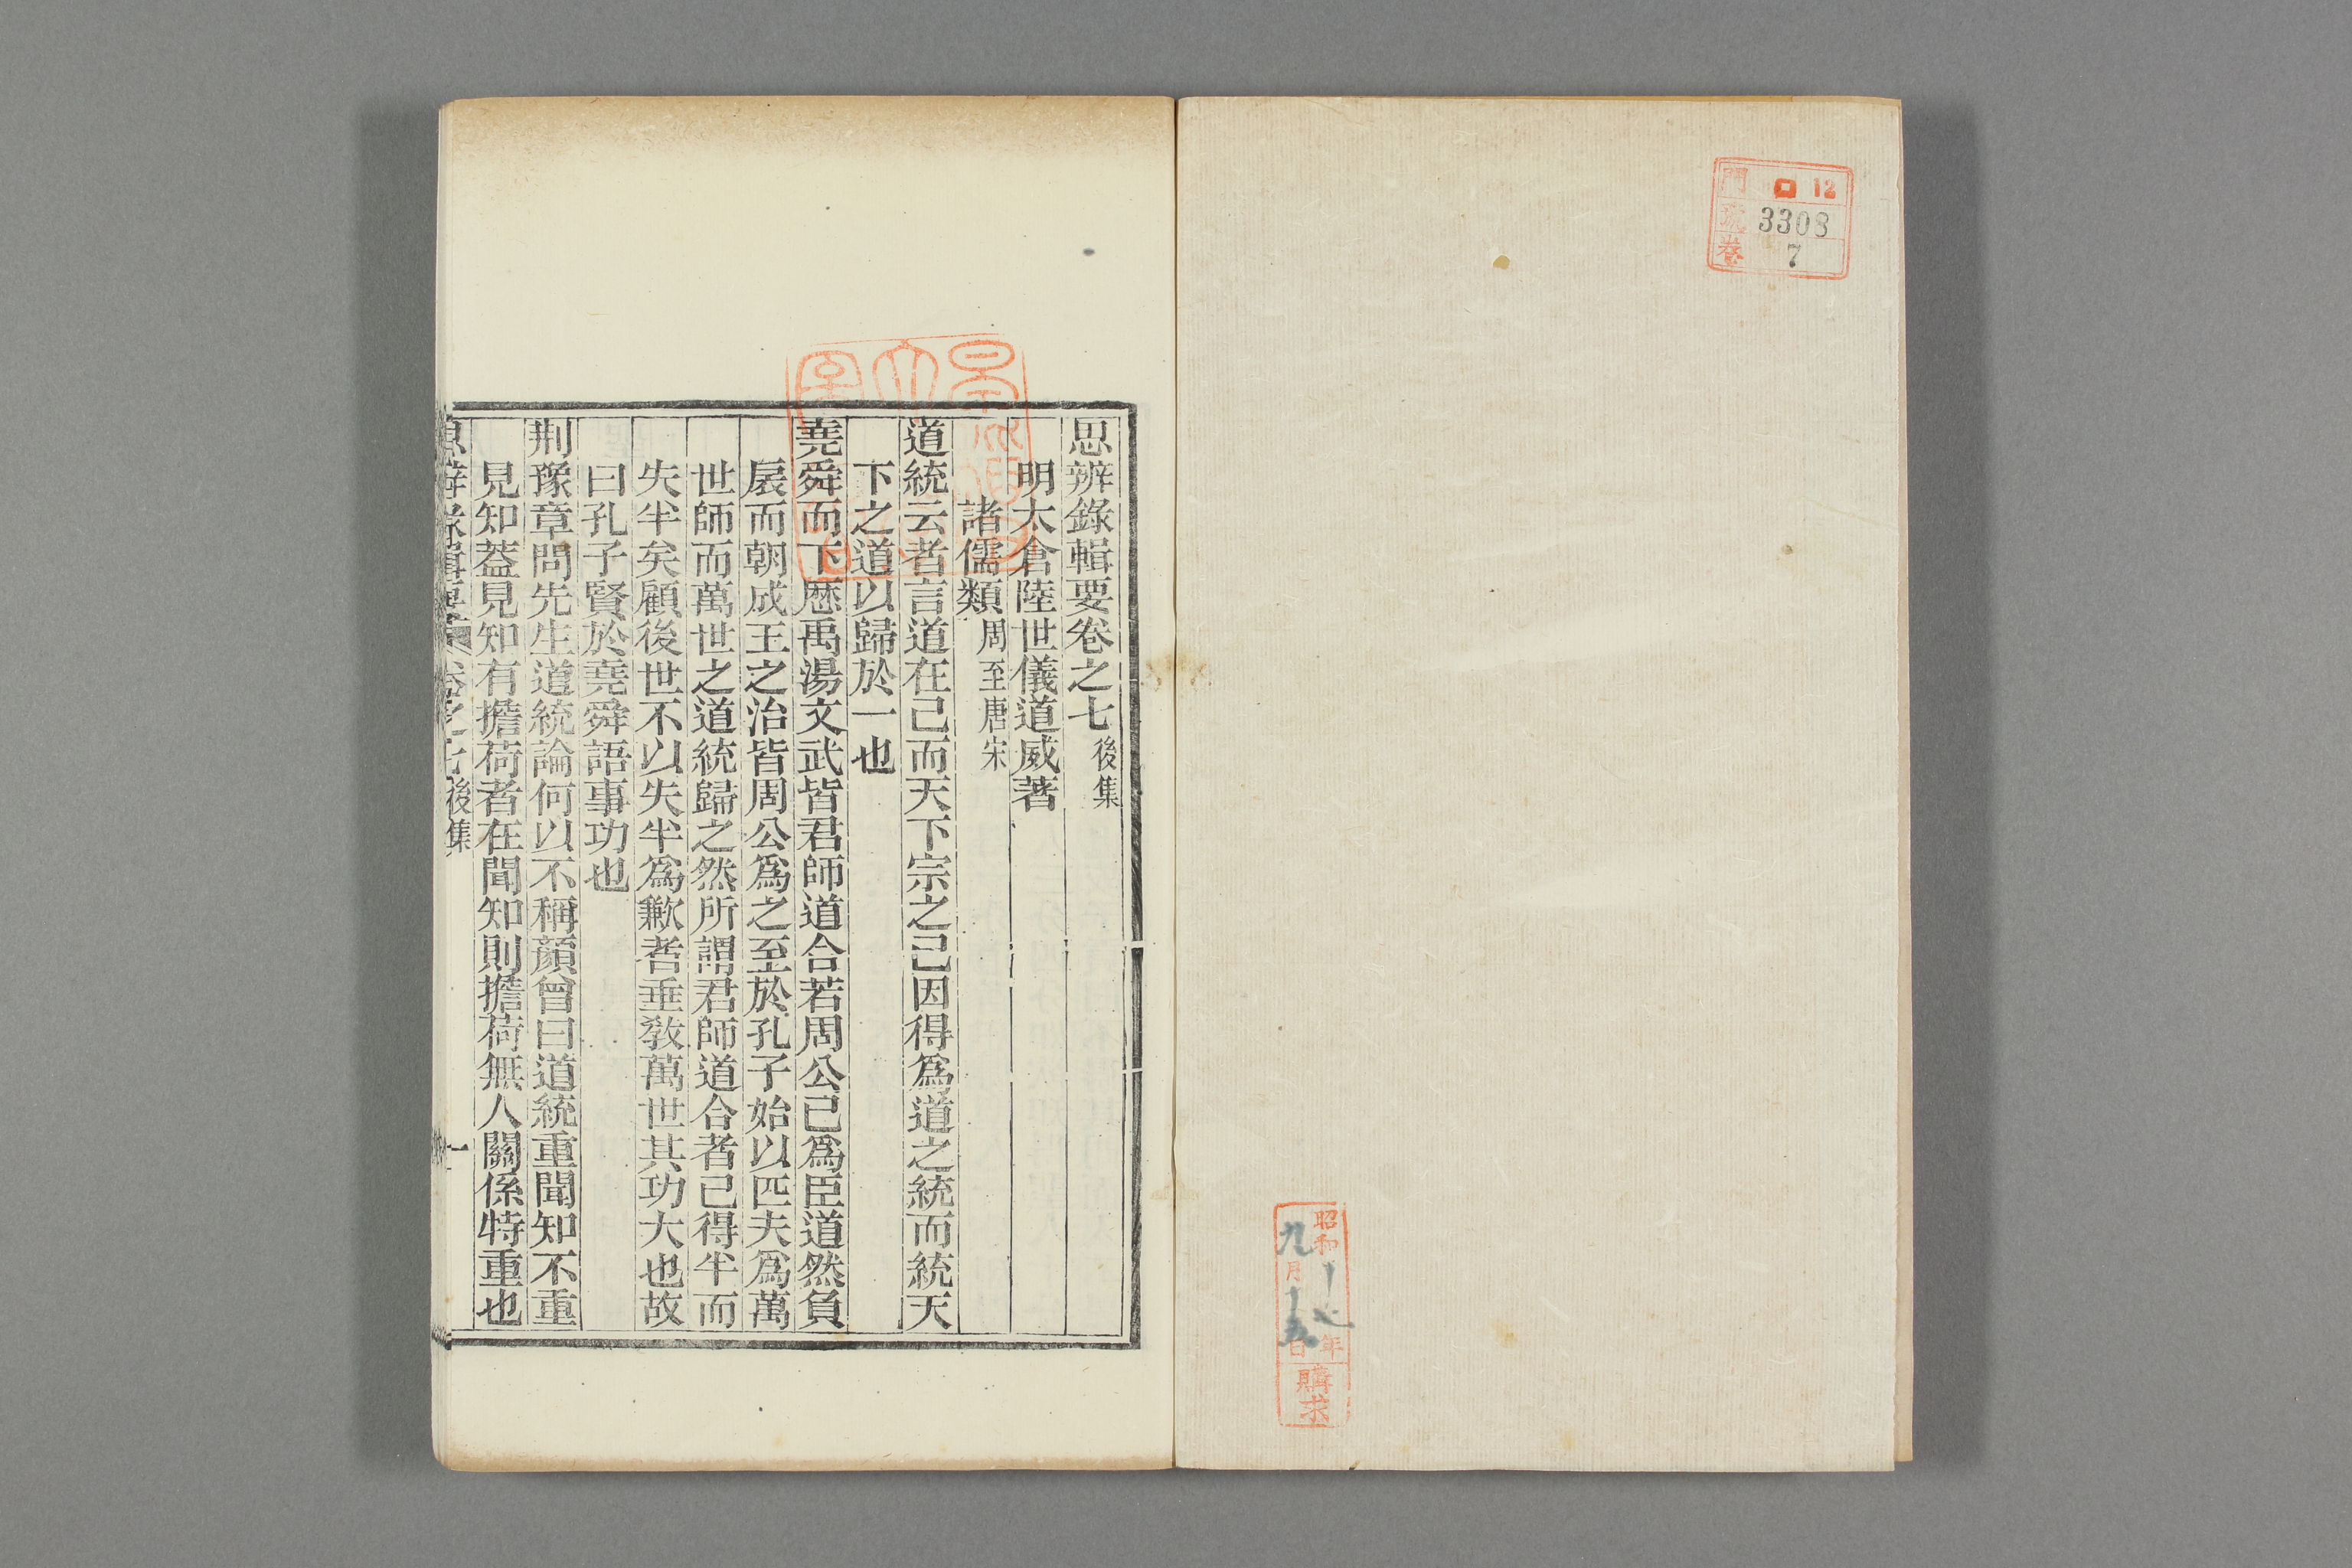 門 口 12
號 3308
卷 7
昭和十七年
九月十五日
購求
思辨錄輯要卷之七 後集
明太倉陸世儀道威著
諸儒類 周至唐宋
道統云者言道在己而天下宗之己因得爲道之統而統天
下之道以歸於一也
堯舜而下歴禹湯文武皆君師道合若周公已爲臣道然負
扆而朝成王之治皆周公爲之至於孔子始以匹夫爲萬
世師而萬世之道統歸之然所謂君師道合者已得半而
失半矣顧後世不以失半爲歉者垂敎萬世其功大也故
曰孔子賢於堯舜語事功也
荆豫章問先生道統論何以不稱顔曾曰道統重聞知不重
見知葢見知有擔荷者在聞知則擔荷無人關係特重也
思辨錄輯要 卷之七 後集 一